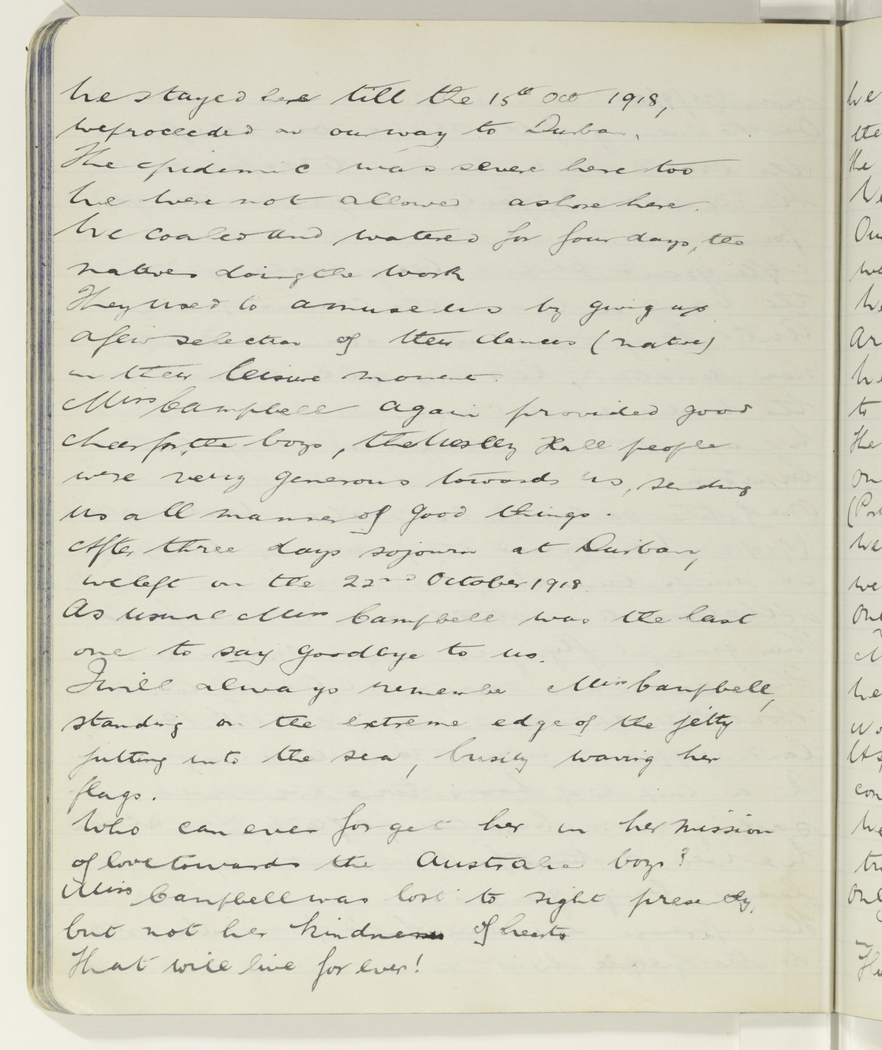 We stayed here till the 15th Oct 1918,
we proceeded on our way to Durban.
The epidemic was severe here too
We were not allowed ashore here.
We coaled and watered for four days, the
natives doing the work
They used to amuse us by giving us
a few selection of their dances (native)
in their leisure moment.
Miss Campbell again provided good
cheer for the boys, the Wesley Hall people
were very generous towards us, sending
us all manner of good things.
After three days sojourn at Durban,
we left on the 22nd October 1918.
As usual Miss Campbell was the last
one to say goodbye to us.
I will always remember Miss Campbell,
standing on the extreme edge of the jetty
jutting into the sea, busily waving her
flags.
Who can ever forget her in her mission
of love towards the Australian boys?
Miss Campbell was lost to sight presently,
but not her kindness of hearts
That will live for ever!